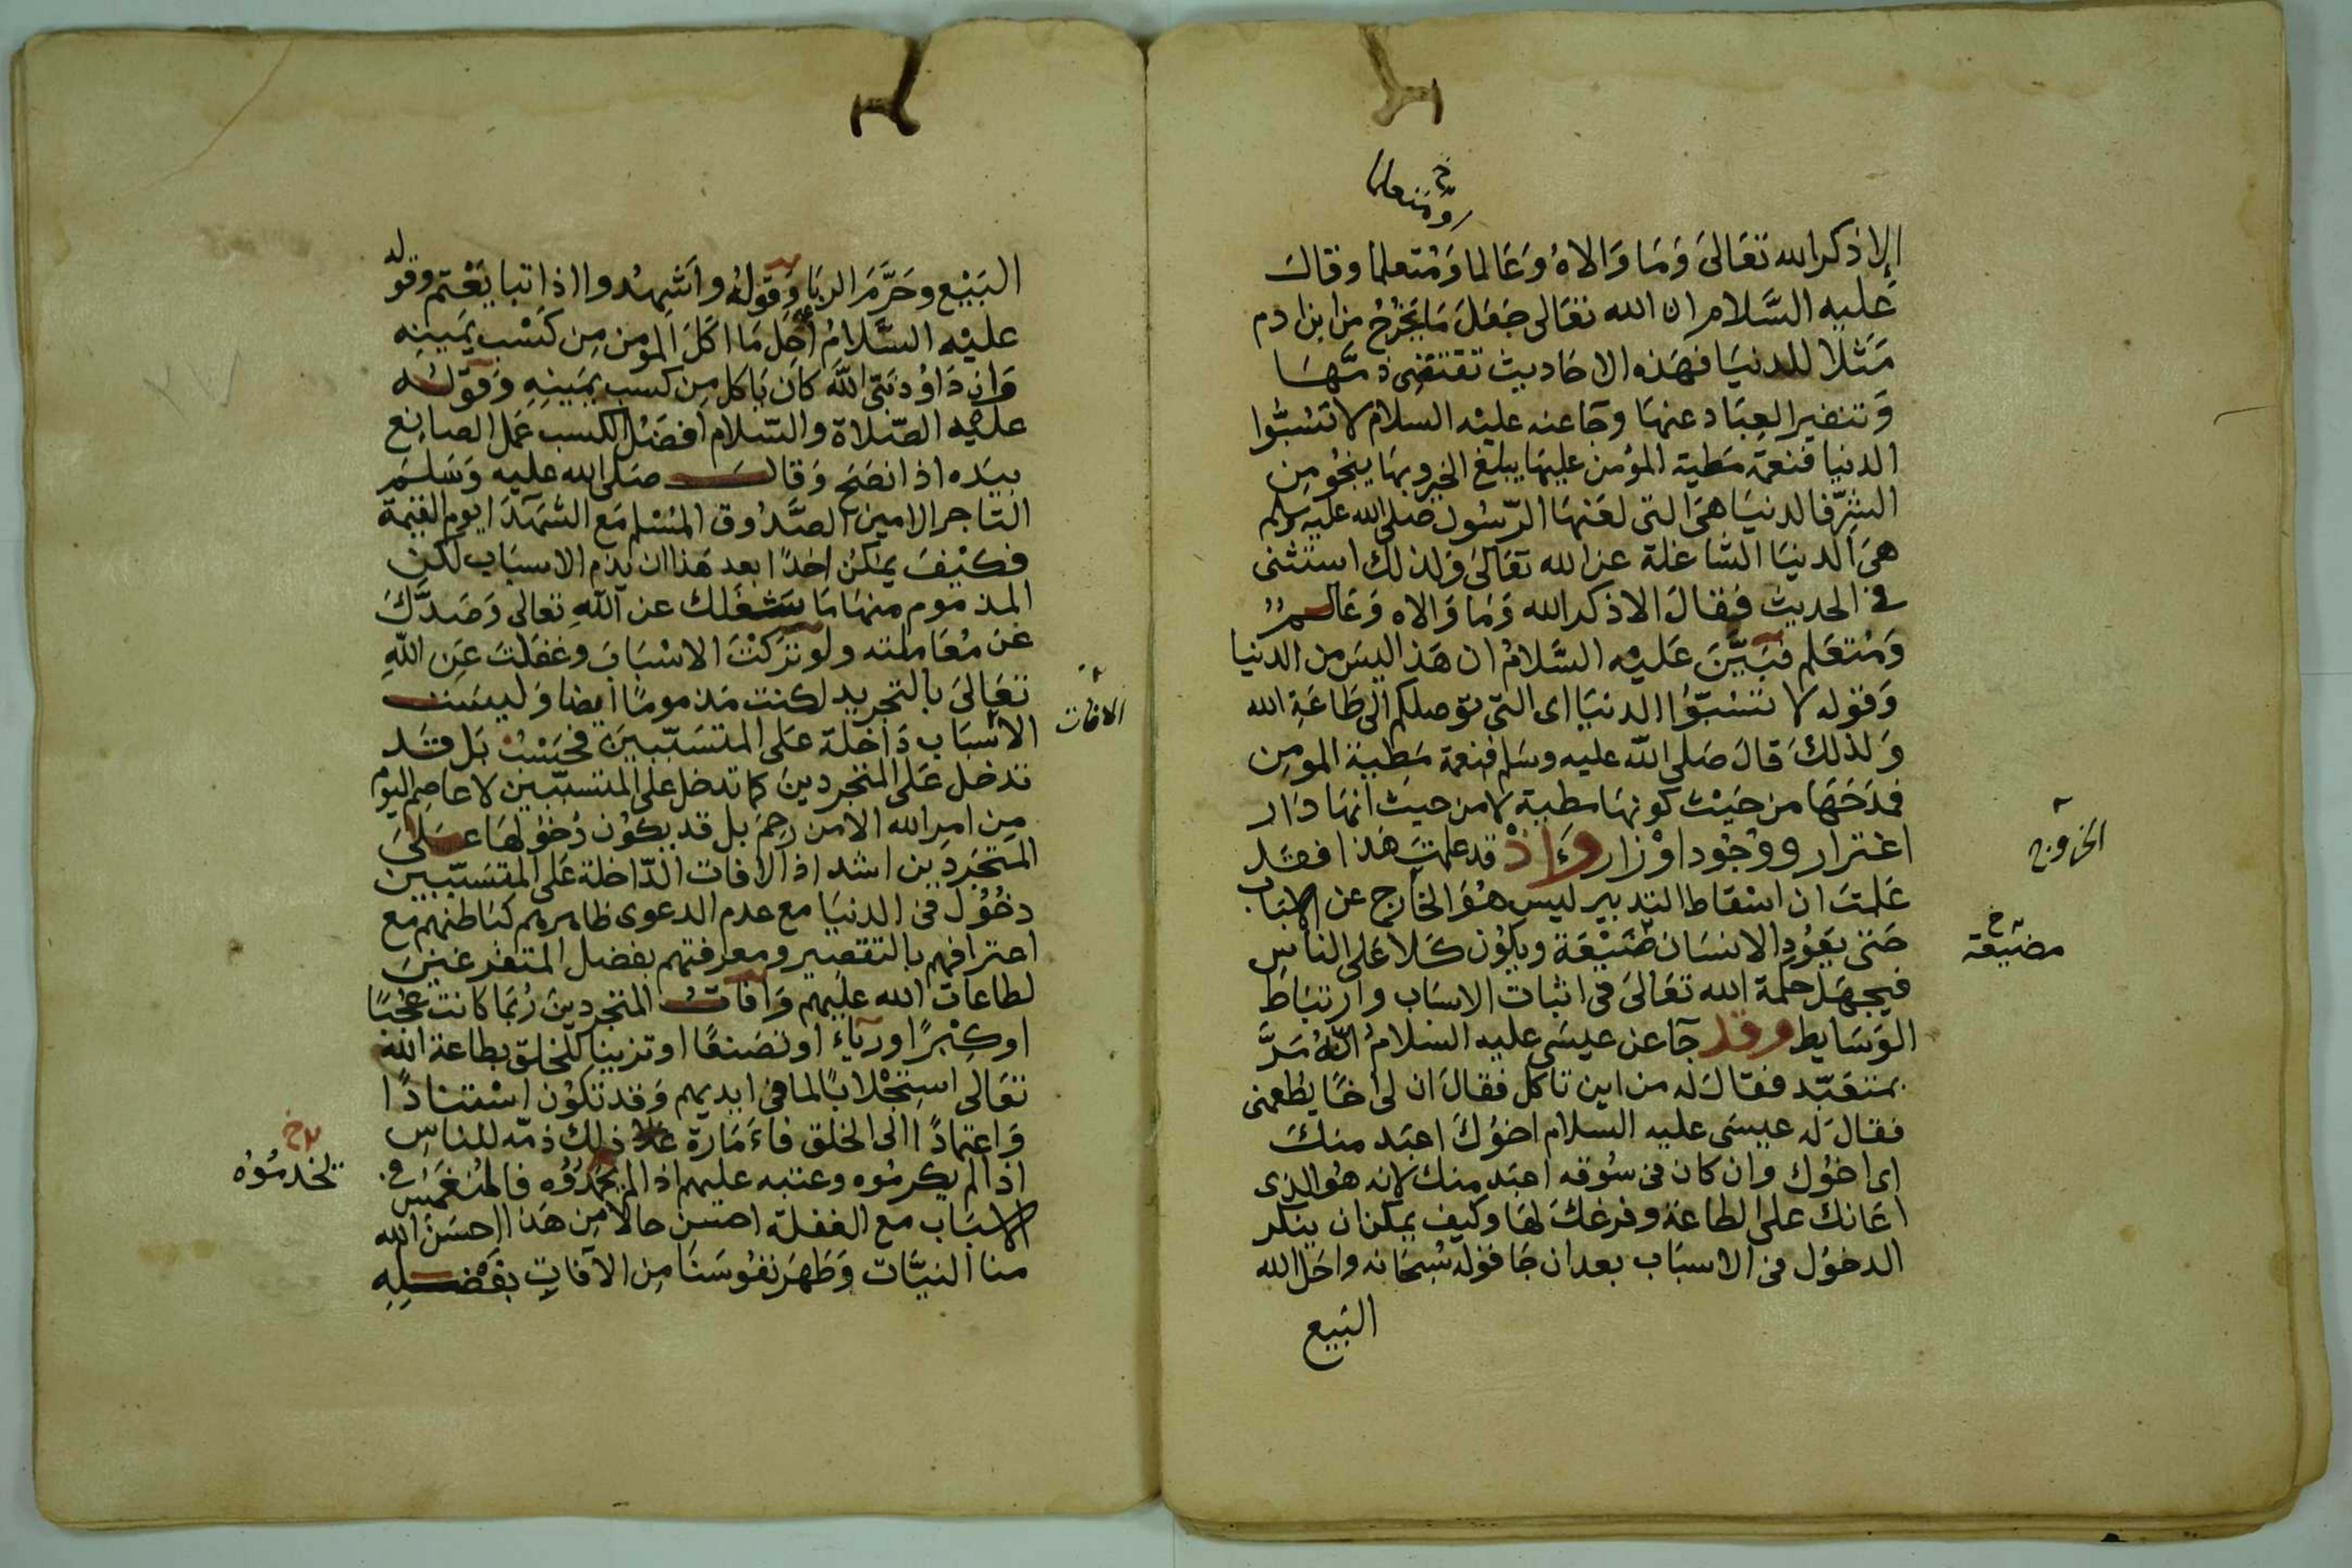 ومتعلما
إلا ذكر الله تعَالىَ وَمَا وَالاهُ وَعَالما وَمُتعلما وقالَ
عَليه السَّلام ان الله تعَالى جَعَلَ مَا يَخرُجُ من ابن ادم
مَثَلًا للدنيَا فهَذه الاحَاديث تقتضِى ذمَّهَا
وَتنفير العِبَاد عنهَا وجَا عنه عليْه السلام لا تسُبُّوا
الدنيا فنعمَة مَطية المؤمن عليهَا يبلغ الخير وبهَا ينجُو مِن
الشرِّ فالدنيَا هىَ التى لعَنهَا الرّسُول صلى الله عليه وسلم
هىَ الدنيَا الشاغلة عن الله تعَالىَ وَلذلك استثنى
فى الحديث فقالَ الا ذكر الله وَمَا وَالاه وَعَالمٌ
وَمُتعَلم فبَيَّنَ عَليْه السَّلامُ ان هَذا ليسَ من الدنيا
وَقوله لا تسُبّوُا الدنيَا اى التى توصلكم الى طَاعَةِ الله
وَلذلكَ قالَ صَلى الله عليه وسَلم فنعمة مَطِية المومِن
فمدَحَهَا من حَيْث كونهَا مطية لا من حيث انهَا دَار
اغترار ووُجُود اوْزار وَاذْ قد علمتَ هَذا فقَد
عَلمتَ ان اسْقاط التدبير ليس هُوَ الخَارج عن الاسبَاب
حَتى يَعُود الانسَان ضَيْعَة ويكُون كَلا عَلى الناسِ
فيجهَل حكمة الله تعَالىَ فى اثبَات الاسَباب وارتبَاط
الوَسَايط وقد جَآ عن عيسَى عليه السلامُ انَّهُ مَرَّ
بمتعَبّد فقالَ لهُ من اين تاكل فقالَ ان لى اخًا يُطعمنى
فقالَ لهُ عيسَى عليه السلام اخوُكَ اعبَد منكَ
اى اخوُك وان كان فى سُوقه اعبَد منك لانه هُو الذى
اعَانك على الطاعَة وفرغكَ لهَا وكيف يمكن ان ينكر
الدخوُل فى الاسبَاب بعد ان جَا قوله سُبحَانه واحَل الله
البَيع
الخروج
مضيعة
البَيْع وحَرَّمَ الربَا وَقولهُ وَاَشهِدُوا اذا تبايَعْتم وقوله
عليْه السَّلامُ اَحَل مَا اكَلَ المومن مِن كَسْب يَمينِه
وَان دَاوُد نبىّ اللَّه كانَ يَاكل مِن كسب يمينِهِ وَقولُه
عَليْه الصّلاة والسّلام افضَل الكسب عَمل الصانِع
بيَده اذا نصَحَ وَقالَ صَلى الله عليه وَسَلمَ
التاجر الامين الصَّدُوق المُسْلم مَع الشهَدَا يوم القيمة
فكَيْفَ يمكن احَدًا بعد هَذا ان يذم الاسبَاب لكن
المذموم منهَا مَا يَشغَلك عن اللَّهِ تعالى وَصَدَّكَ
عَنْ مُعَاملته ولَو ترَكْتَ الاسْبَابَ وغفَلتَ عَنِ اللَّهِ
تعَالىَ بالتجريد لكنت مَذمومًا ايضا وَليسَت
الاسْبَاب دَاخلة عَلى المتسَبّبينَ فحَسْبُ بَل قَد
تدخل عَلى المتجردينَ كما تدخل على المتسبّبين لا عاصِم اليَوم
مِن امر الله الا من رَحِمَ بل قد يكوُن دُخوُلهَا عَلى
المتجَردِين اشد اذ الافات الدّاخلة عَلى المتسَبّبين
دخوُل فى الدنيَا مع عدم الدعوى ظاهرهم كبَاطنهم مع
اعترافهم بالتقصِير ومعرفتهم بفضل المتفرغينَ
لطاعات الله عليهم وَافاتُ المتجردِينَ رُبمَا كانت عُجْبًا
او كِبْرًا او ريآءً او تصَنعًا او تزيينا للخَلق بطاعة الله
تعَالى استجلابًا لما فى ايديهم وَقد تكوُن استنادًا
وَاعتمادًا الى الخلق فامَارة ذلك ذمّه للناس
اذا لم يكرموُه وعتبه عليهم اذا لم يَخدموُه فالمُنغَمِسُ فى
الاسبَاب مع الغفلة احسَن حالا مِن هَذا احسَنَ الله
منا النيَّات وَطَهرَ نفوُسَنَا مِن الآفاتِ بفَضْلِهِ
الافات
تخدموُه